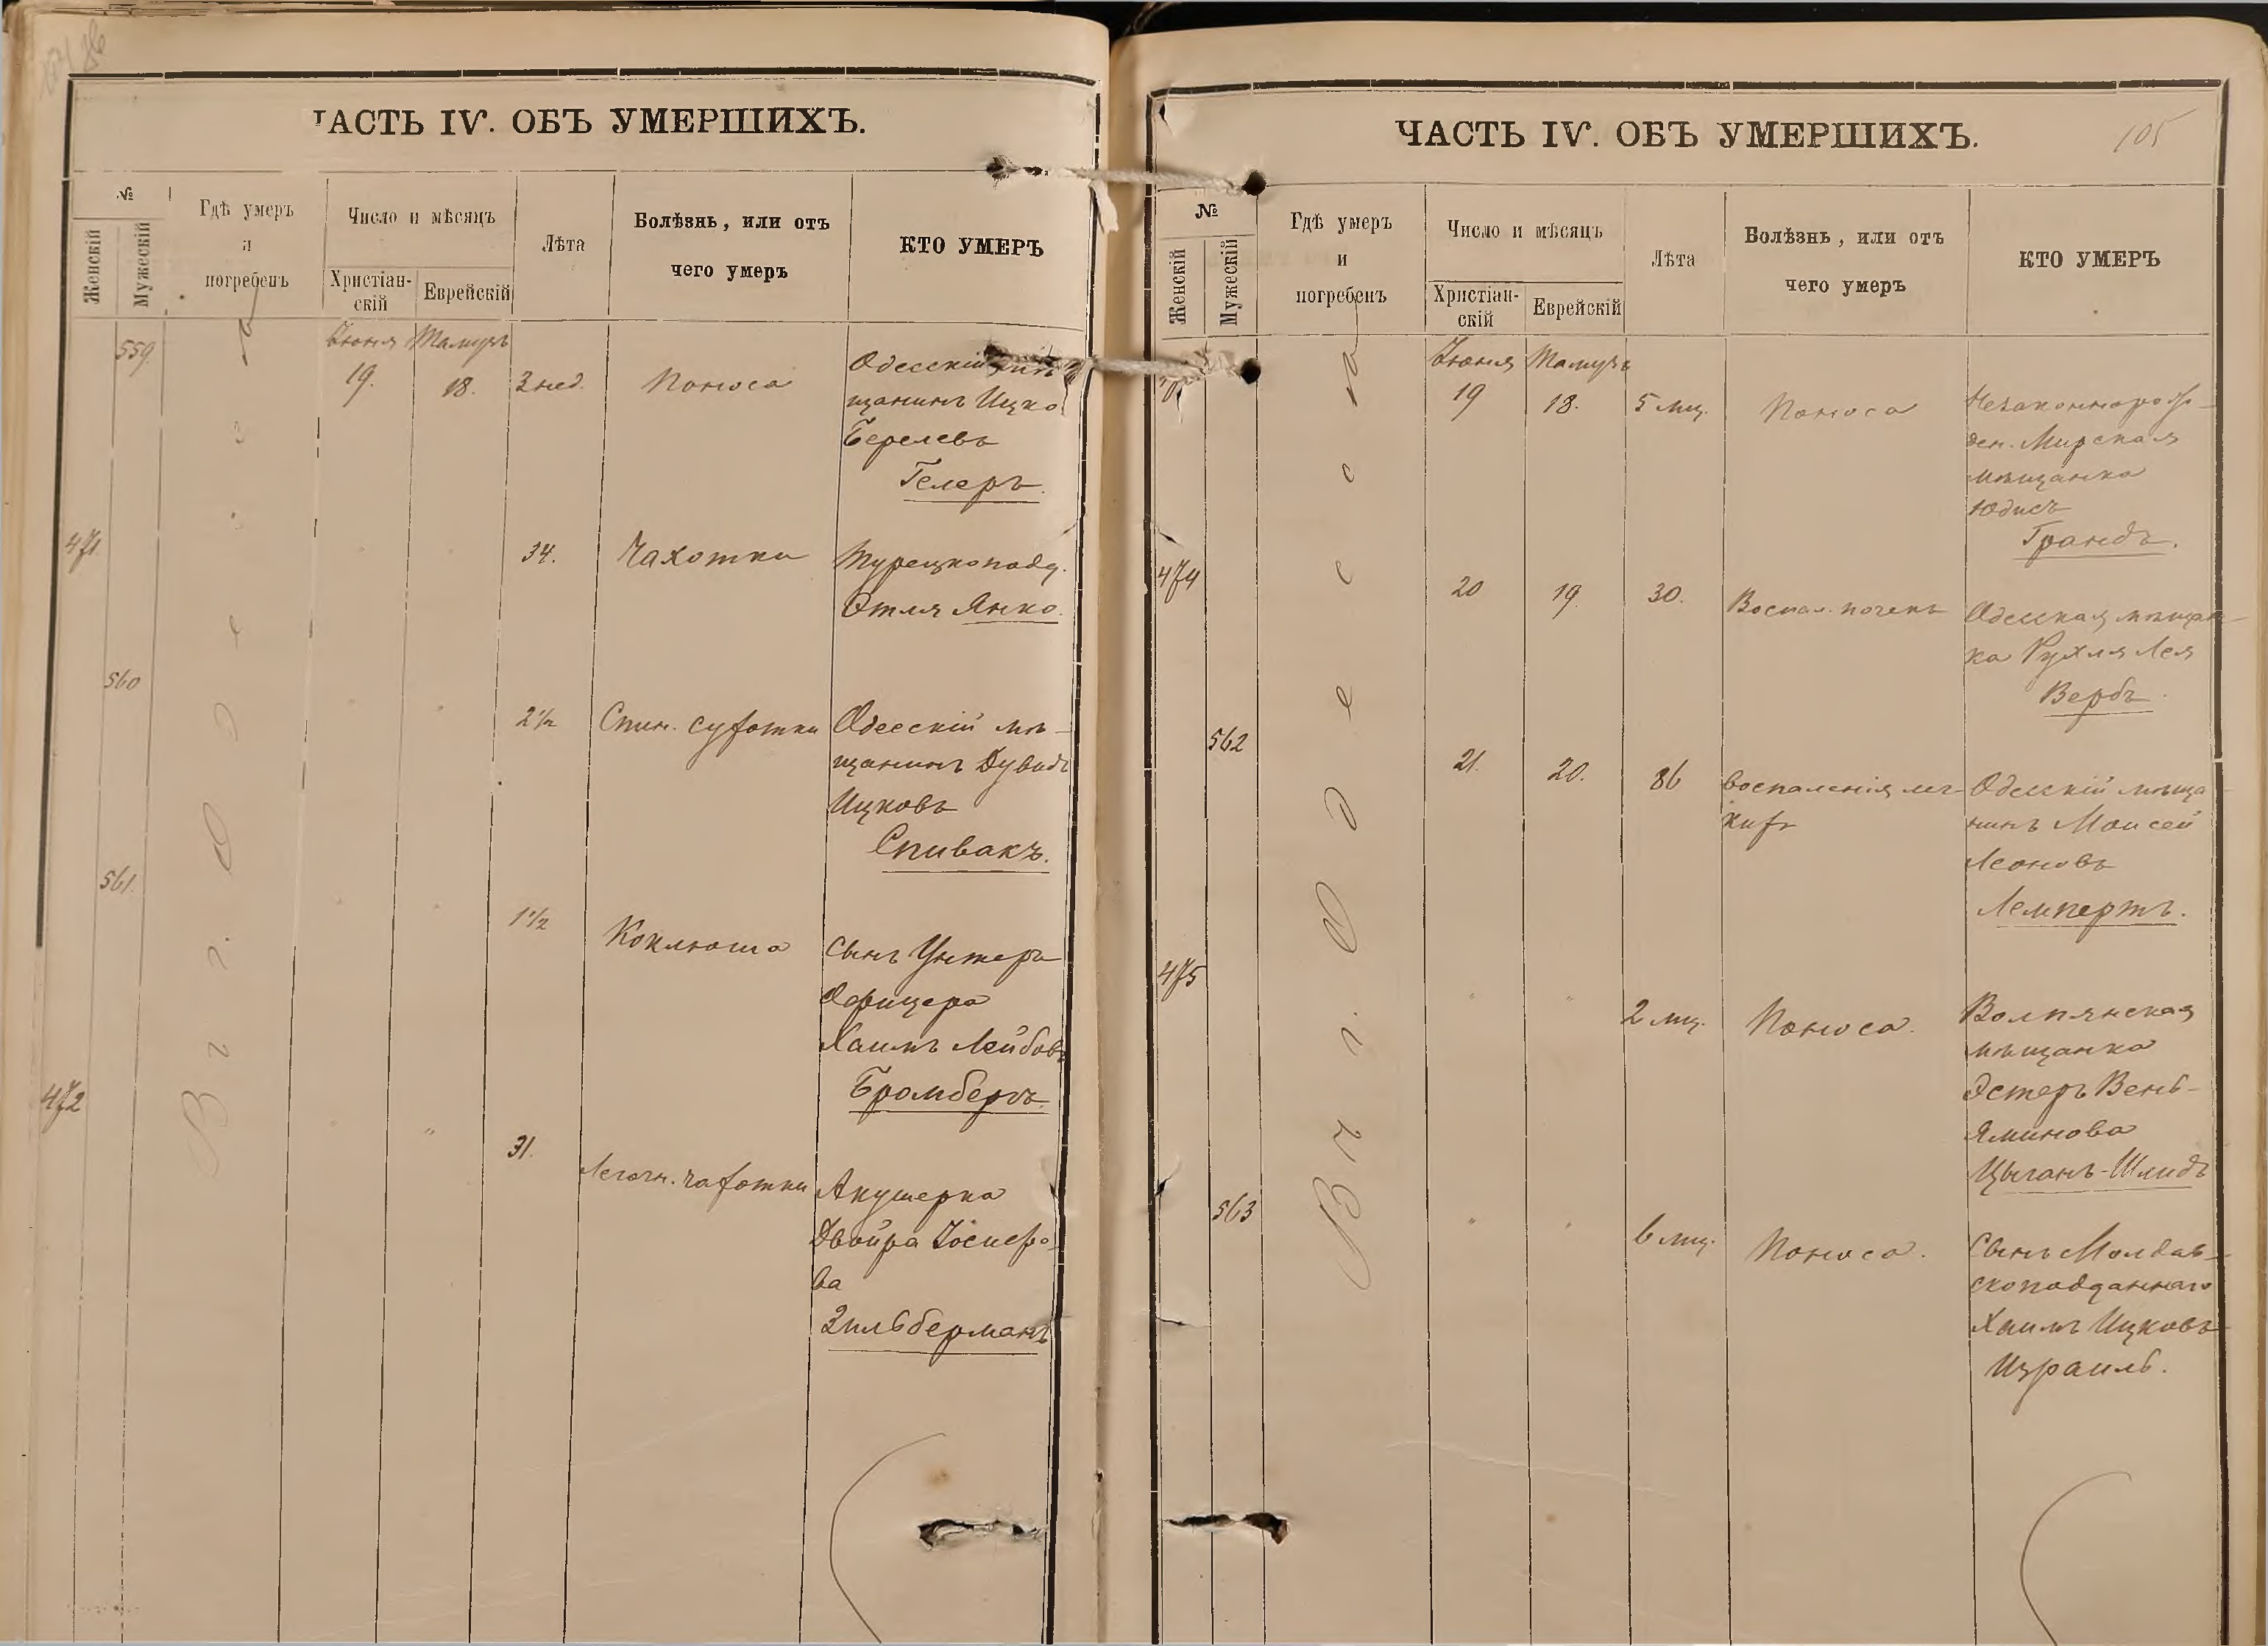 ЧАСТЬ IV. ОБЪ УМЕРШИХЪ.
№
Женскій
Мужескій
Гдѣ умеръ
и
погребенъ
Число и мѣсяцъ
Христіан-
скій
Еврейскій
Лѣта
Болѣзнь, или отъ
чего умеръ
КТО УМЕРЪ
Въ г. Одесса
559.
Іюня Тамузъ
19. 18. 3 нед. Поноса
Одесскій
щанинъ Ицко
Берелевъ
Гелеръ.
471.
34. Чахотки Турецкоподд.
Этля Янко.
560
2 1/2 Спин. сухотки Одесскій мѣ-
щанинъ Дувидъ
Ицковъ
Спивакъ.
561.
1 1/2 Коклюша Сынъ Унтеръ
Офицера
Хаимъ Лейбовъ
Бромбергъ.
472
" 31. Легочн. чахотки Акушерка
Двойра Іосифо-
ва
Зильберманъ
ЧАСТЬ IV. ОБЪ УМЕРШИХЪ.
105
№
Женскій
Мужескій
Гдѣ умеръ
и
погребенъ
Число и мѣсяцъ
Христіан-
скій
Еврейскій
Лѣта
Болѣзнь, или отъ
чего умеръ
КТО УМЕРЪ
Въ г. Одесса
Іюня Тамузъ
19 18. 5 мц. Поноса Незаконнорож-
ден. Мирская
мѣщанка
Юдисъ
Грандъ.
474
20 19. 30. Воспал. почекъ Одесская мѣщан-
ка Рухля Лея
Вербъ.
562
21. 20. 86 Воспаленія лег-
кихъ
Одесскій мѣща
нинъ Моисей
Леоновъ
Лемпертъ.
475
" " 2 мц. Поноса. Волпянская
мѣщанка
Эстеръ Вень-
яминова
Цыганъ-Шмидъ
563
" " 6 мц. Поноса. Сынъ Молдав-
скоподданнаго
Хаимъ Ицковъ
Израиль.